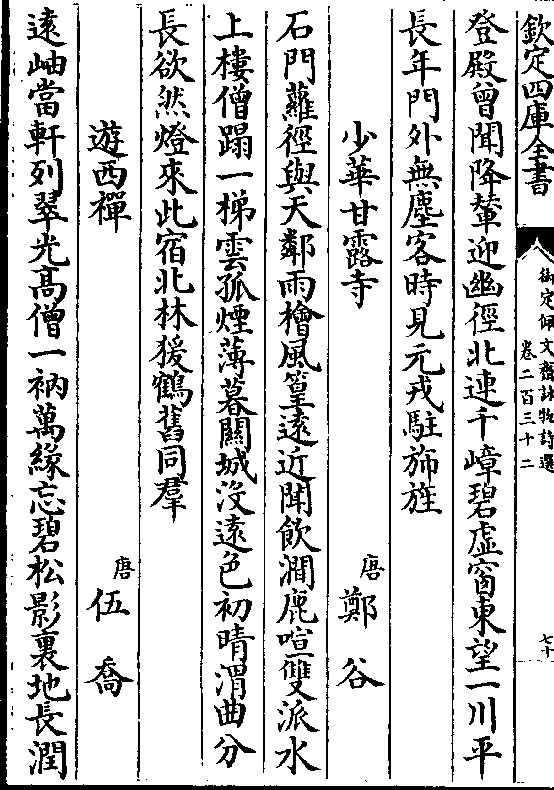 欽定四庫全書
御定佩文齋詠物詩選
卷二百三十二
七十
登殿曾聞降輦迎幽徑北連千嶂碧虛窗東望一川平
長年門外無塵客時見元戎駐斾旌
少華甘露寺
唐鄭谷
石門蘿徑與天鄰雨檜風篁遠近聞飲澗鹿喧雙派水
上樓僧蹋一梯雲孤煙薄暮關城沒遠色初晴渭曲分
長欲然燈來此宿北林猨鶴舊同羣
遊西禪
唐伍喬
遠岫當軒列翠光高僧一衲萬緣忘碧松影裏地長潤